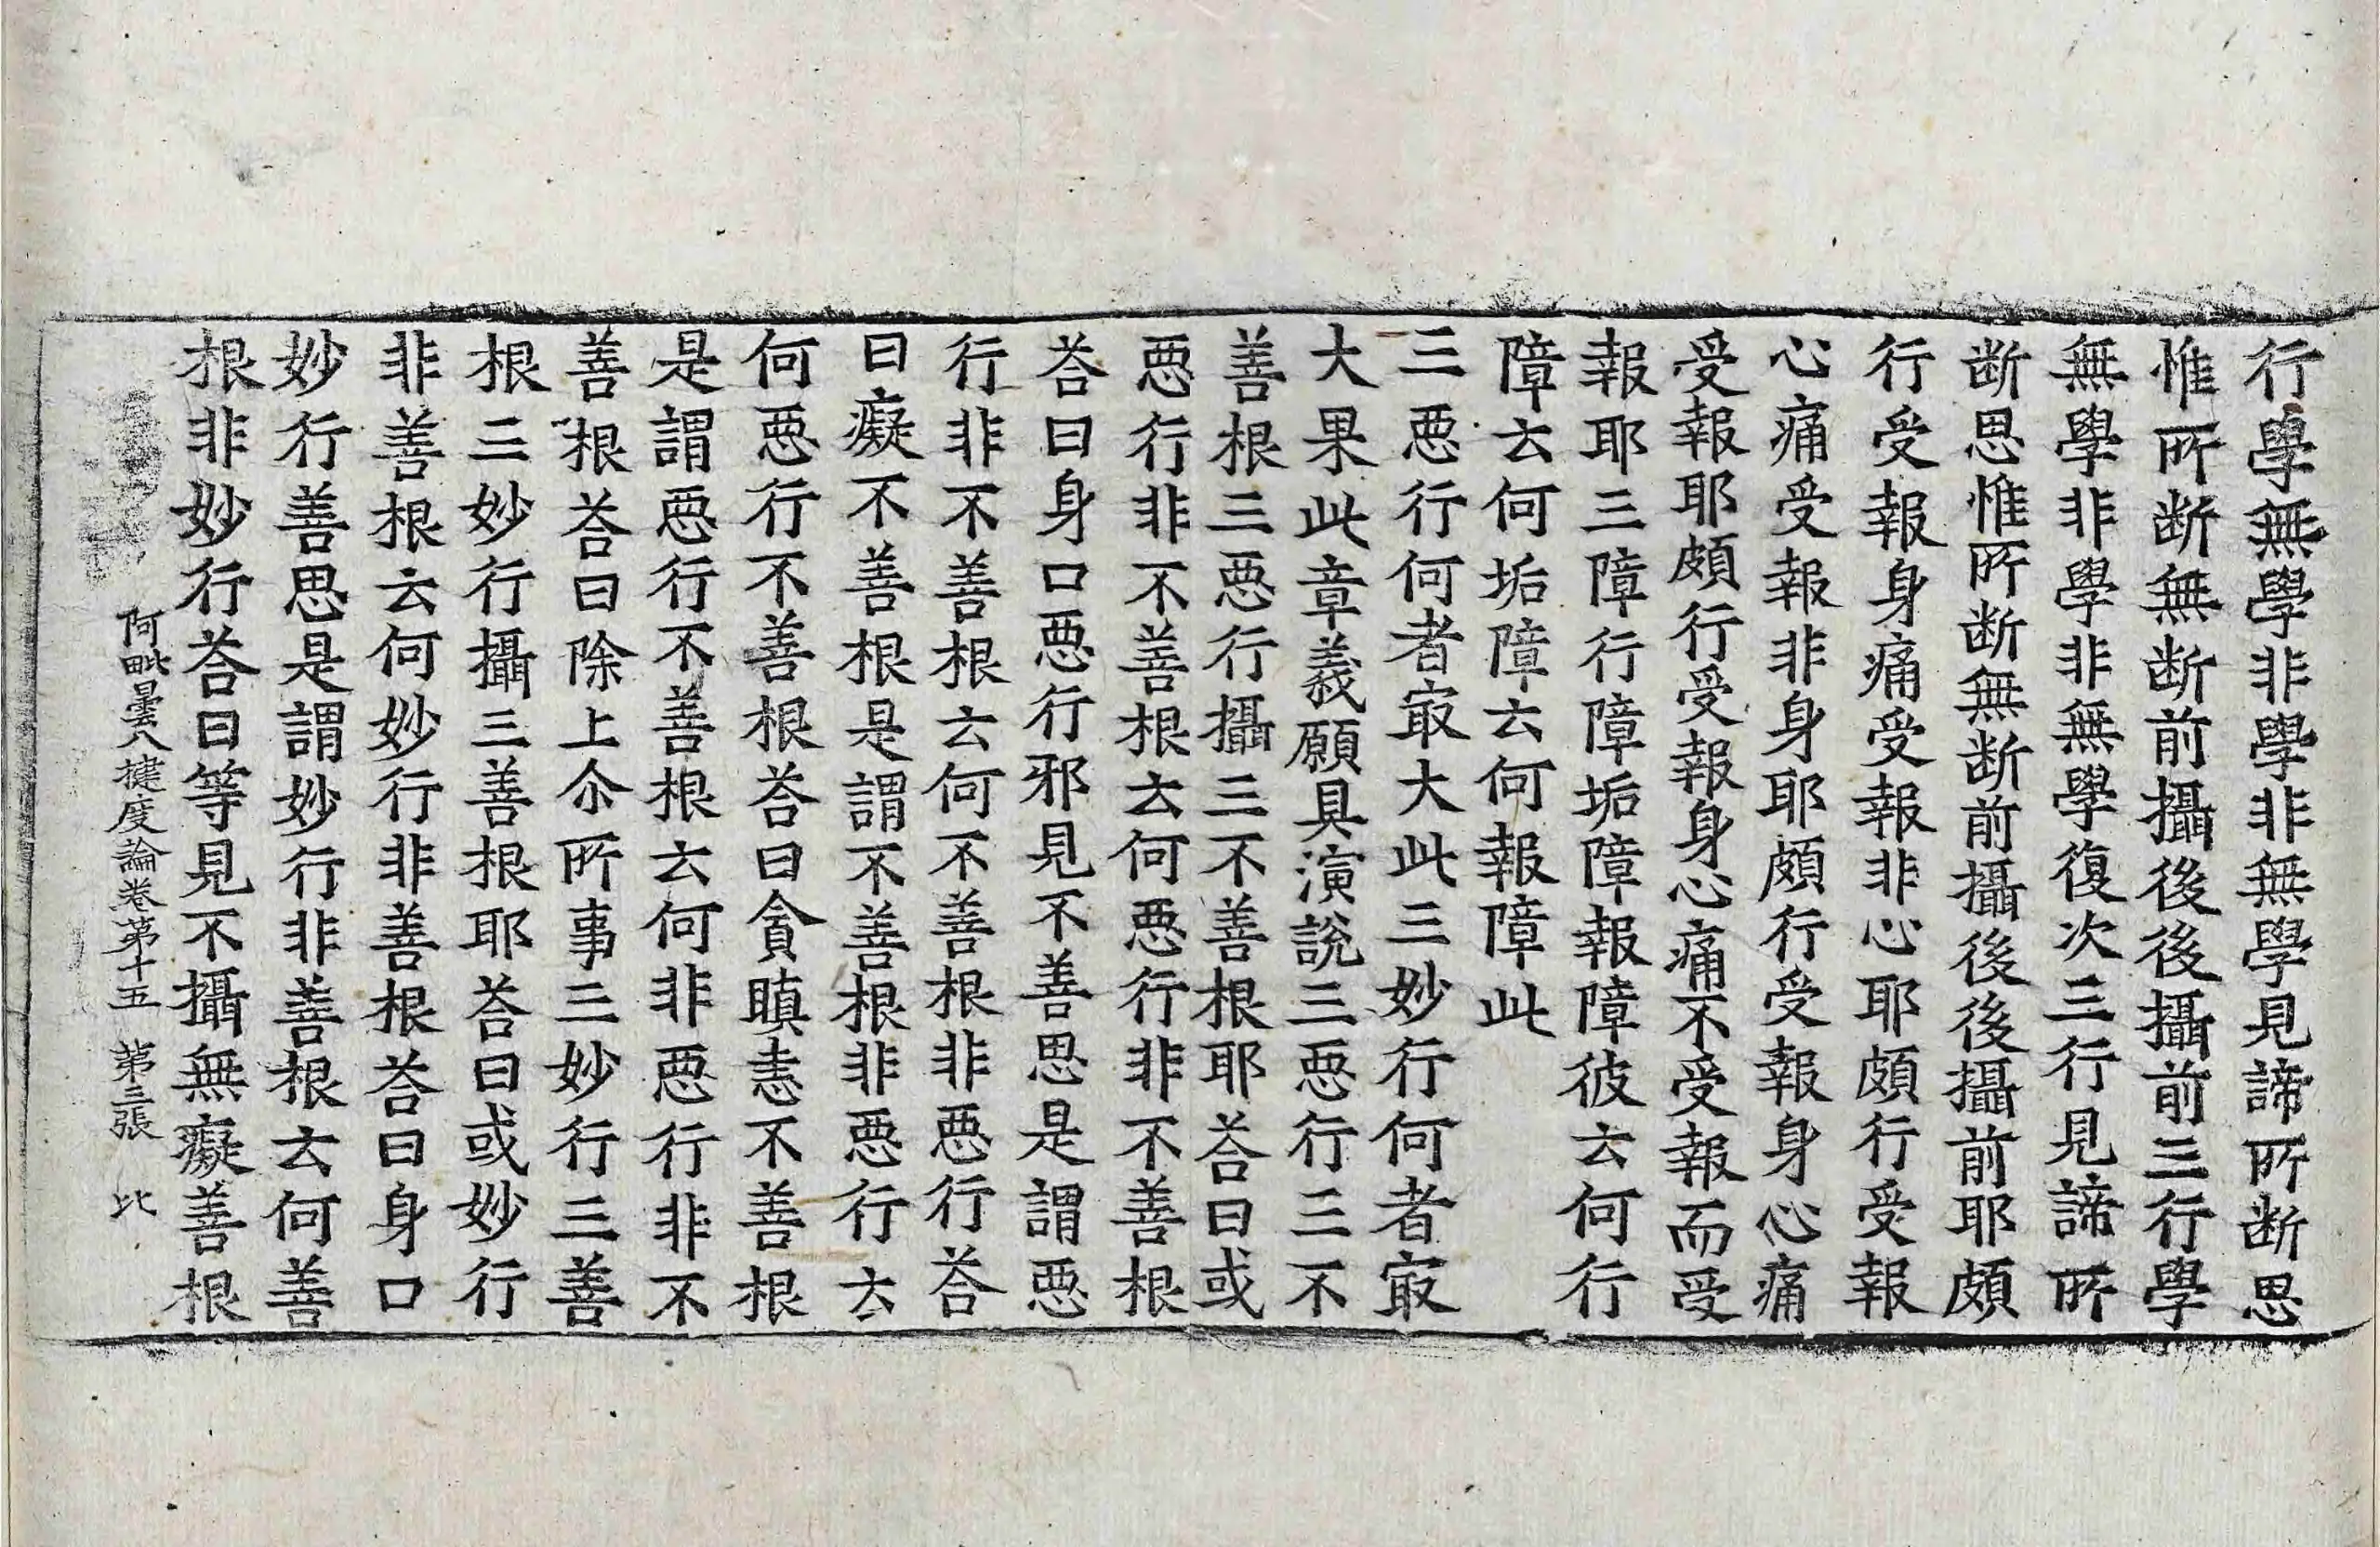 行學無學非學非無學見諦所断思
惟所断無断前攝後後攝前三行學
無學非學非無學復次三行見諦所
断思惟所断無断前攝後後攝前耶頗
行受報身痛受報非心耶頗行受報
心痛受報非身耶頗行受報身心痛
受報耶頗行受報身心痛不受報而受
報耶三障行障垢障報障彼云何行
障云何垢障云何報障此
三惡行何者㝡大此三妙行何者㝡
大果此章義願具演說三惡行三不
善根三惡行攝三不善根耶荅曰或
惡行非不善根云何惡行非不善根
荅曰身口惡行邪見不善思是謂惡
行非不善根云何不善根非惡行荅
曰癡不善根是謂不善根非惡行云
何惡行不善根荅曰貪瞋恚不善根
是謂惡行不善根云何非惡行非不
善根荅曰除上尒所事三妙行三善
根三妙行攝三善根耶荅曰或妙行
非善根云何妙行非善根荅曰身口
妙行善思是謂妙行非善根云何善
根非妙行荅曰等見不攝無癡善根
阿毗曇八揵度論卷第十五 第三張 比